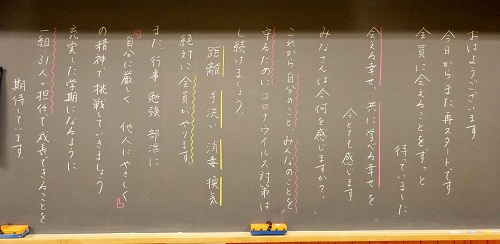 おはようございます
今日からまた再スタートです
全員に会えることをずっと
待っていました
会える幸せ、共に学べる幸せを
今とても感じます
みなさんは今何を感じますか?
これから自分のことみんなのことを
守るためにコロナウイルス対策は
し続けましょう。
距離 手洗い 消毒 換気
絶対に全員がやります。
また、行事 勉強 部活に
『自分に厳しく 他人にやさしく』
の精神で挑戦していきましょう
充実した学期になるように
一組31人+担任で成長できることを
期待しています。